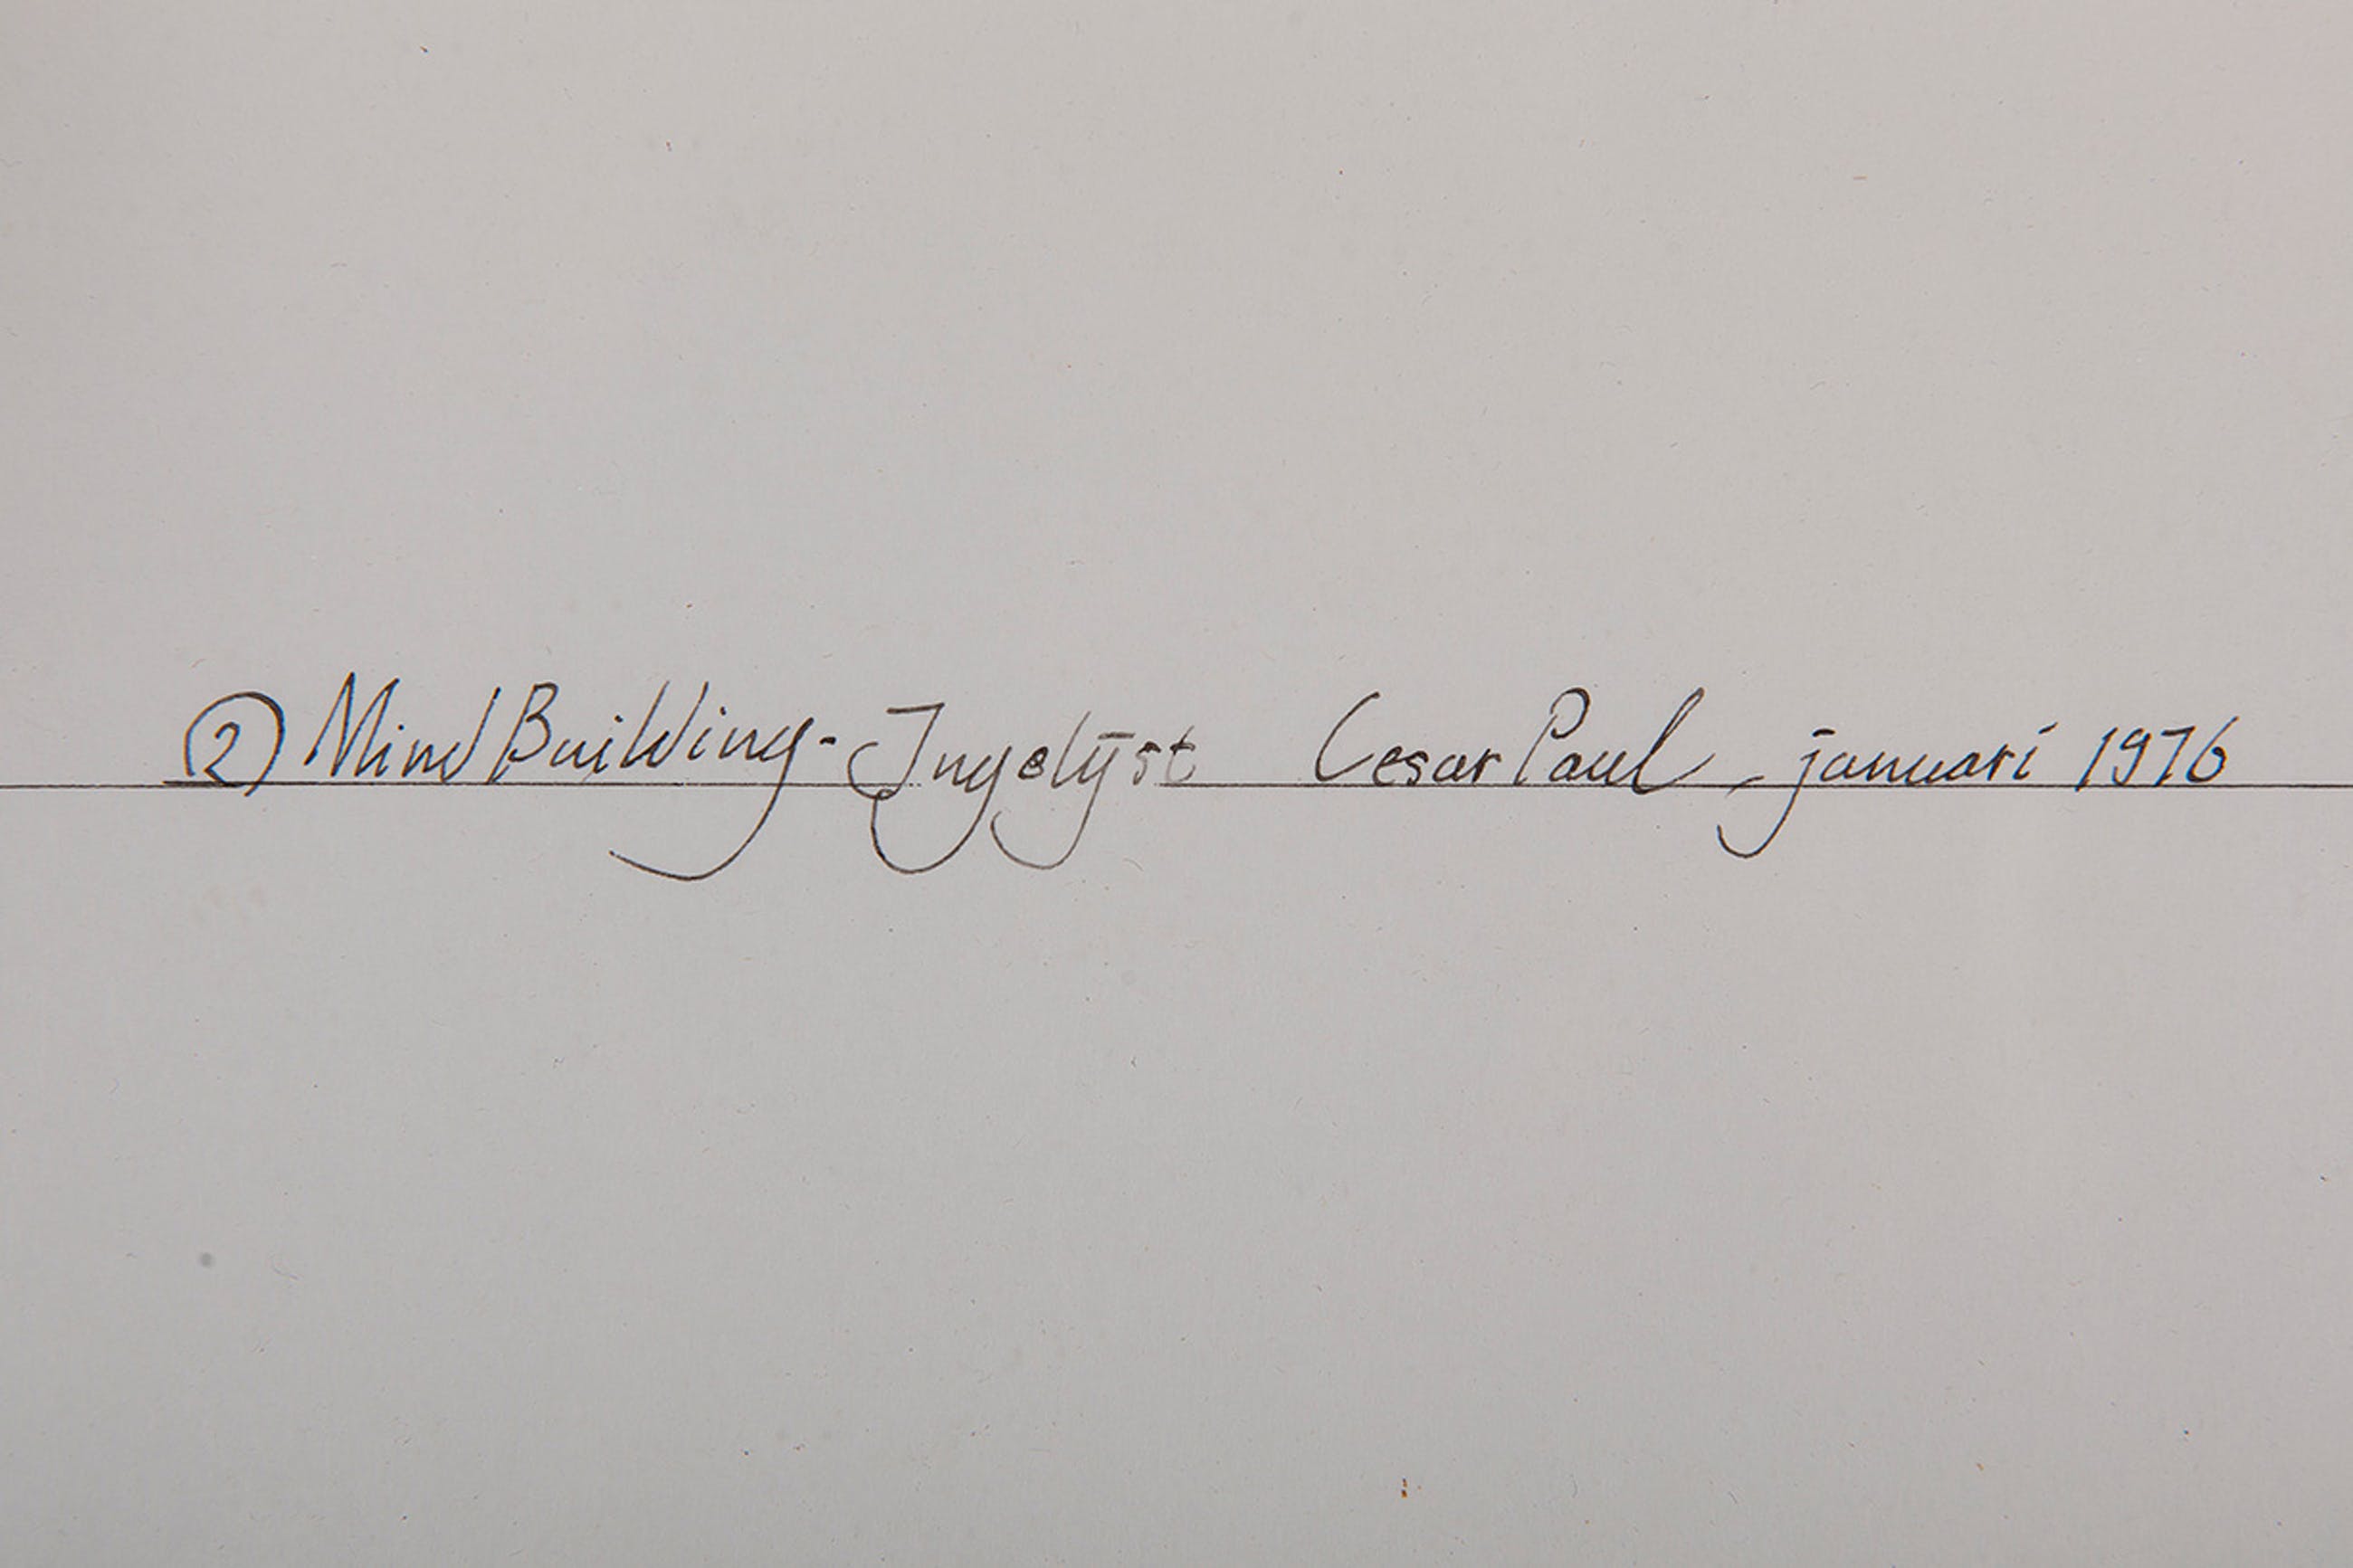 ② Mind Building - Ingelijst Cesar Paul - januari 1976